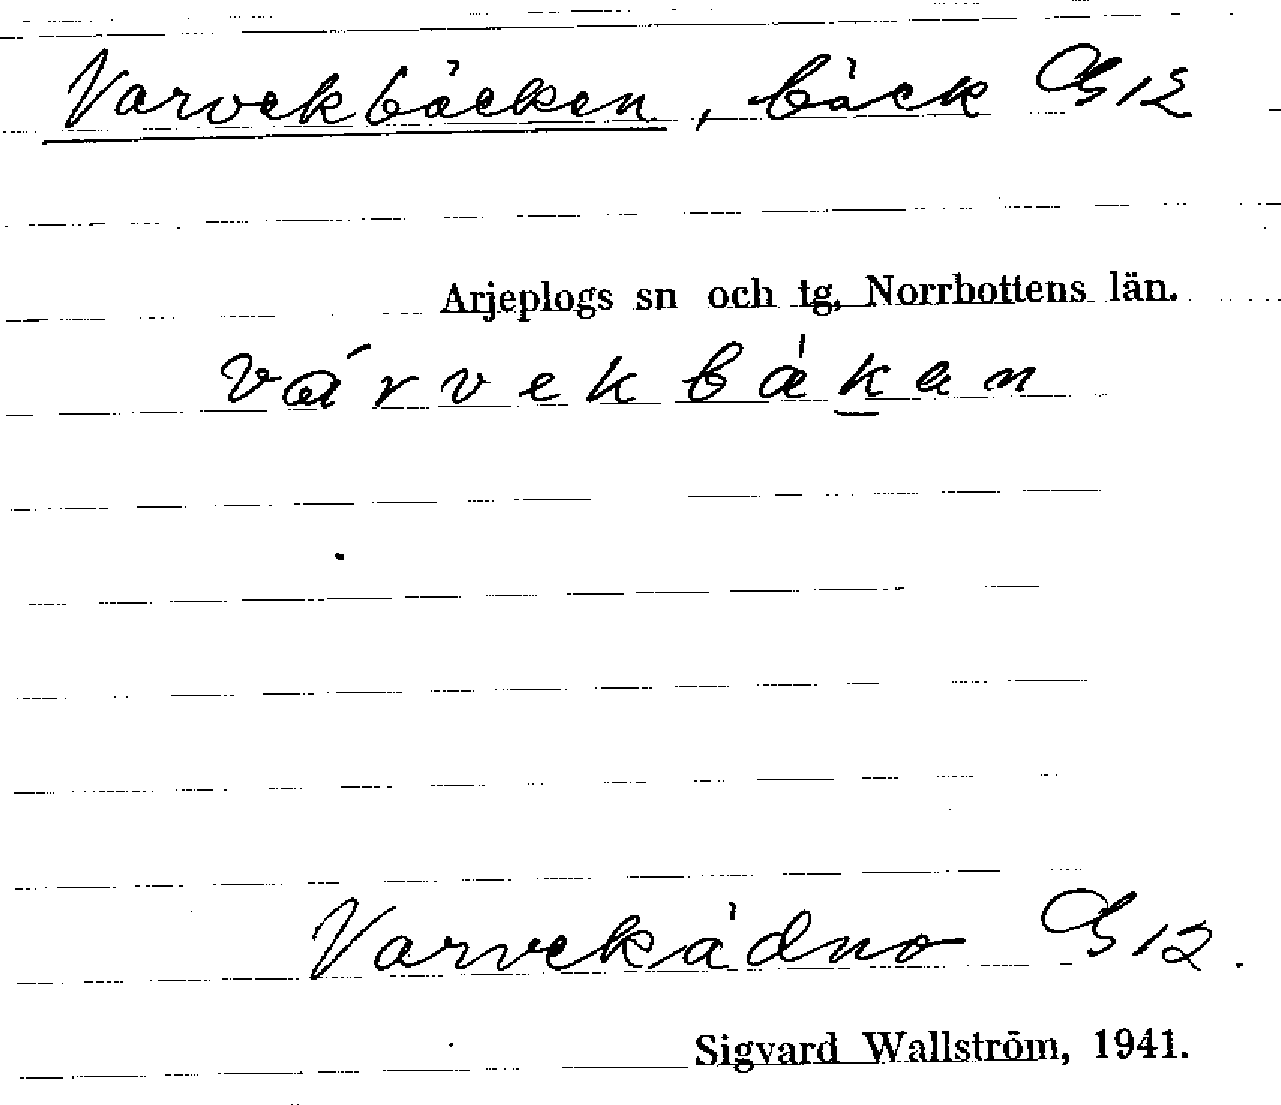 Varvekbäcken, bäck G12
Arjeplogs sn och tg, Norrbottens län.
várvekbäken
Varvekädno G12.
Sigvard Wallström, 1941.